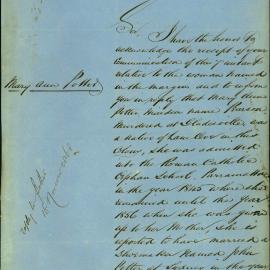 Sir,
I have the honor to
acknowledge the receipt of your
Communication of the 7 instant
relative to the woman named
in the margin and to inform
you in reply that Mary Ann
Potter Maiden name Pearson
Murdered at
was
a native of Lane Cove in this
Colony, she was admitted
into the Roman Catholic
Orphan School, Parramatta
in the year 1845 where she
remained until the year
1856 when she was given
up to her Mother, she is
reported to have married a
Shoemaker Named John
Potter of Sydney in the year
Mary Ann Potter